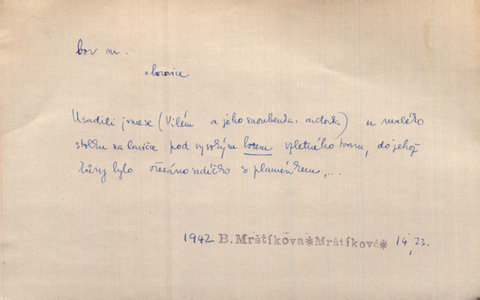 bor m.
= borovice
Usadili jsme se (Vilém a jeho snoubenka. a dcerka) u malého
stolku na lavičce pod vysokým borem vzletného tvaru, do jehož
kůry bylo vřezáno srdéčko s plaménkem,...
1942 B. Mrštíkova*Mrštíkové* 14, 23.